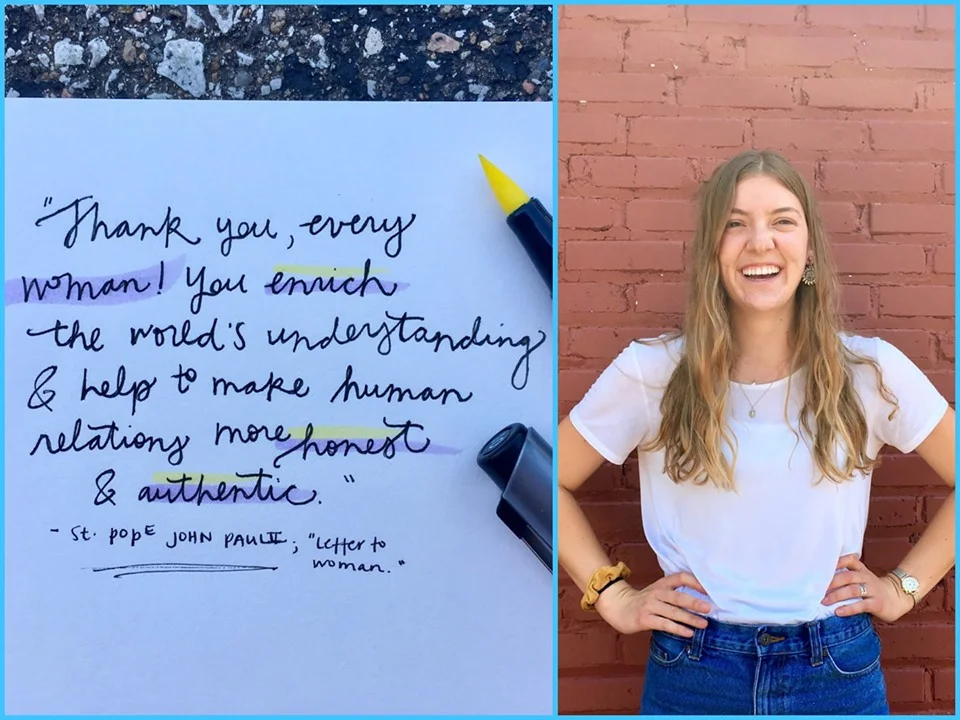 "Thank you, every
woman! You enrich
the world's understanding
& help to make human
relations more honest
& authentic."
- St. POPE JOHN PAUL II; "Letter to
woman."